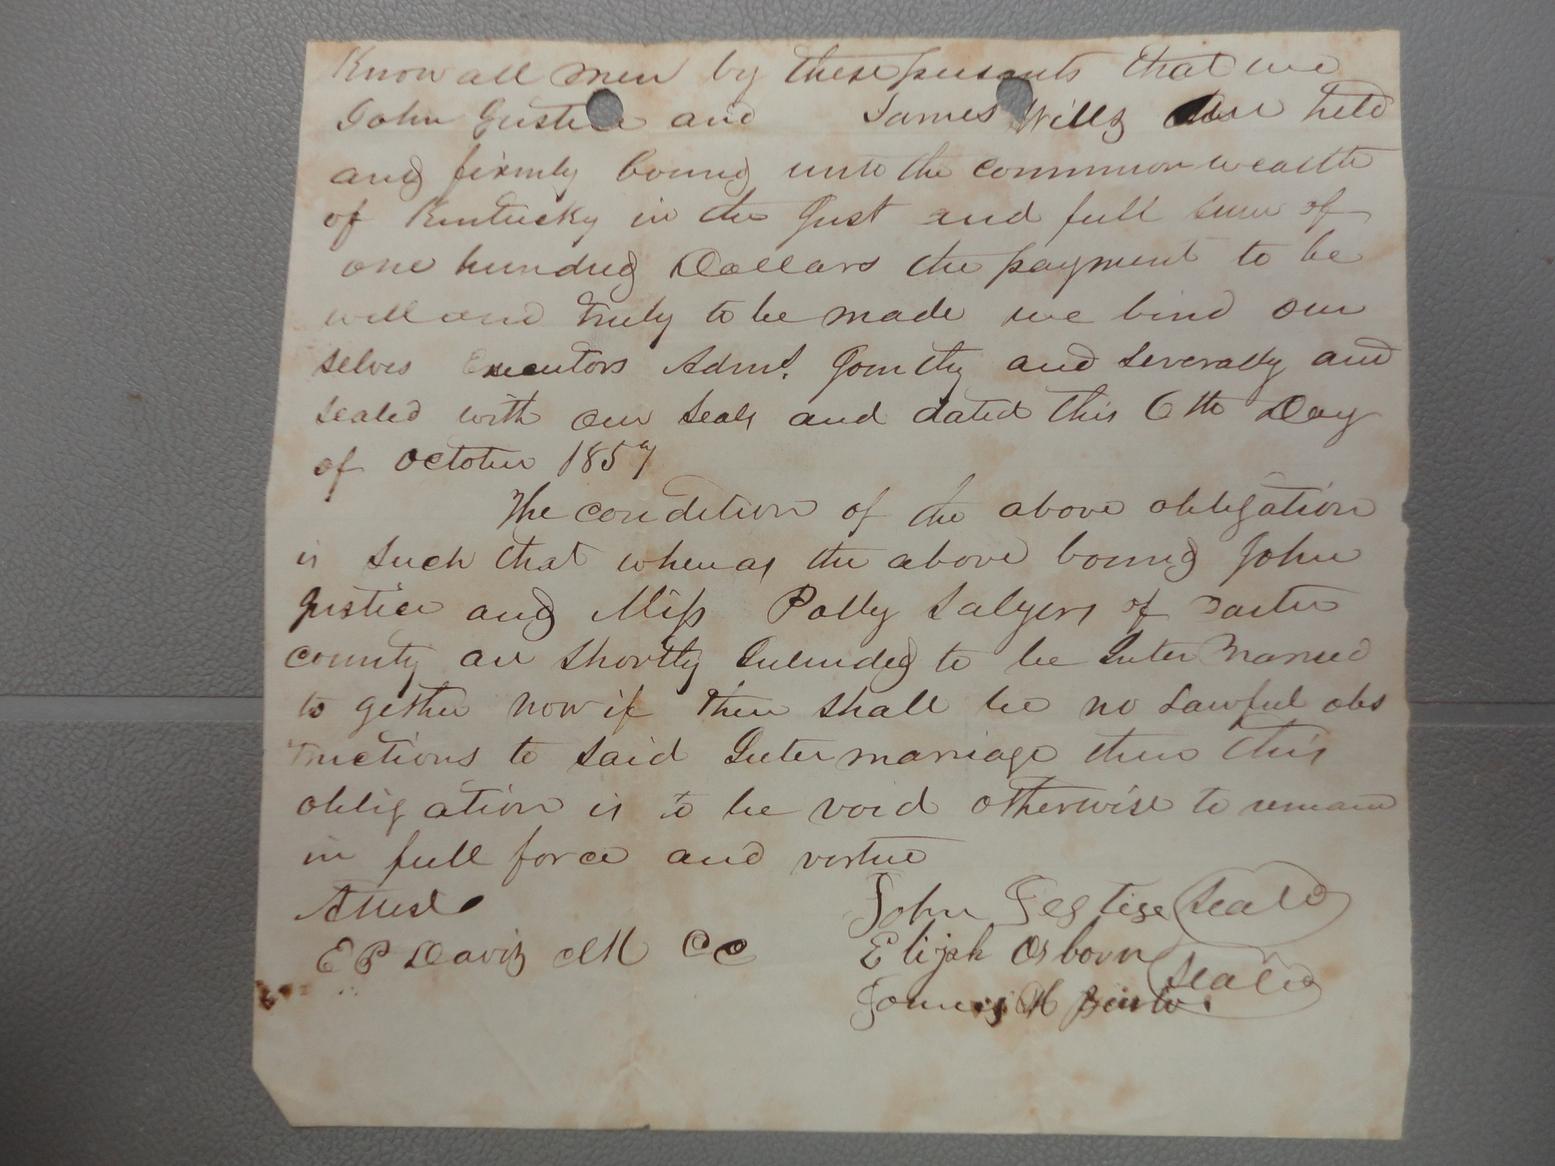 Know all men by these presents that we
John Justice and James Wills are held
and firmly bound unto the commonwealth
of Kentucky in the Just and full sum of
one hundred Dollars the payment to be
well and truly to be made we bind our
selves Executors Adms. Jointly and severally and
sealed with our seals and dated this 6th Day
of October 1857
The condition of the above obligation
is such that whereas the above bound John
Justice and Miss Polly Salyers of Carter
county are shortly Intended to be Inter Married
to gether now if there shall be no Lawful obs
tructions to said Inter marriage then this
obligation is to be void otherwise to remain
in full force and virtue
Attest
E P Davis CC
John Seald
Elijah Osborn
Seald
James H